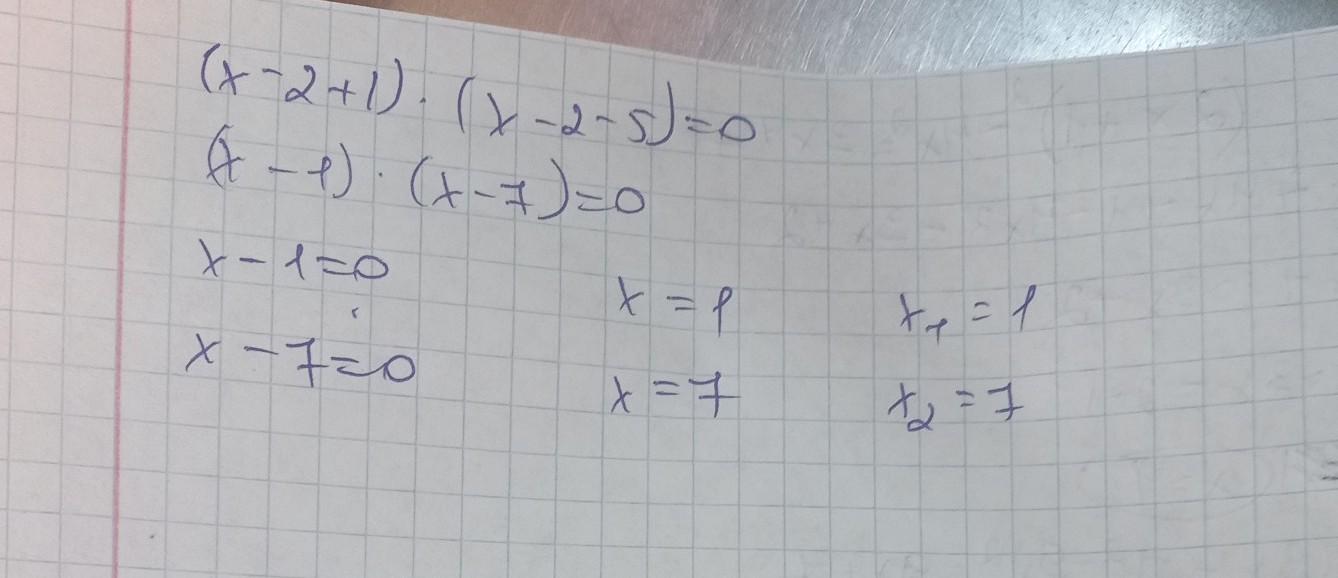 (x-2+1)·(x-2-5)=0
(x-1)·(x-7)=0
x-1=0 x=1 x₁=1
x-7=0 x=7 x₂=7